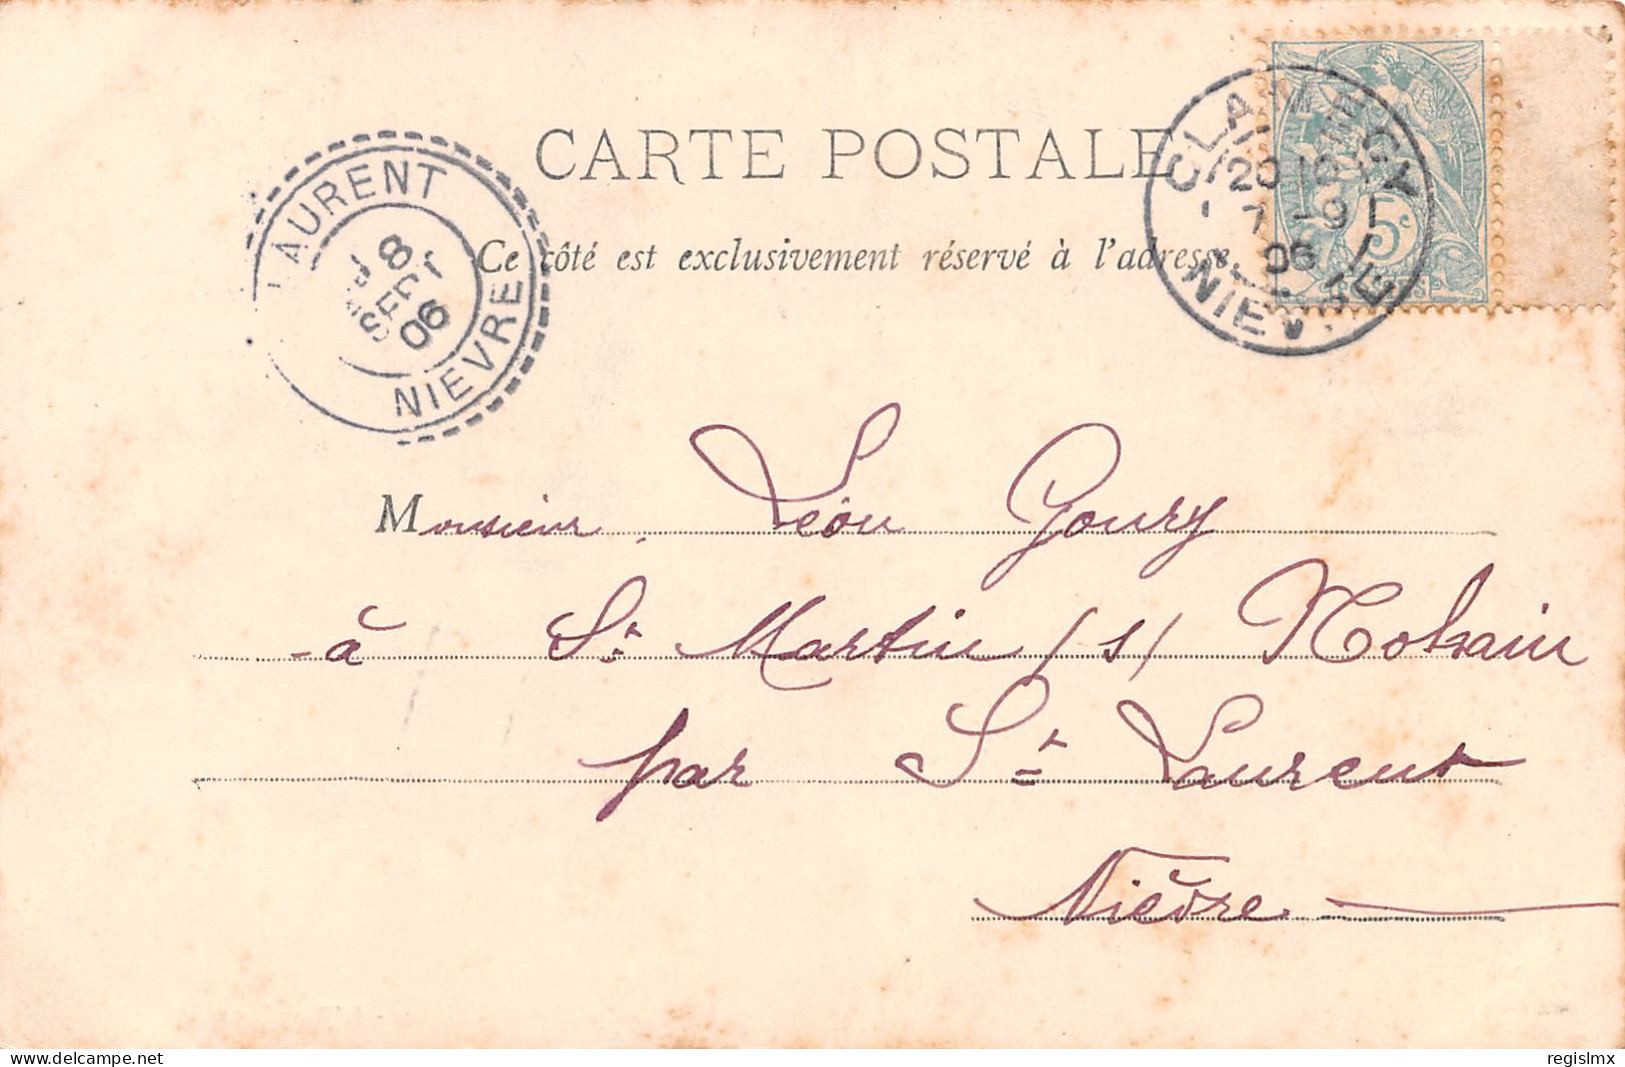 CARTE POSTALE
Ce côté est exclusivement réservé à l'adresse
CLAMECY
20
7 -9
06
NIEVRE
5c
LAURENT
8
SEPT
06
NIEVRE
Monsieur Léon Goury
à St Martin /s/ Nohain
par St Laurent
Nièvre
delcampe.net
regislmx